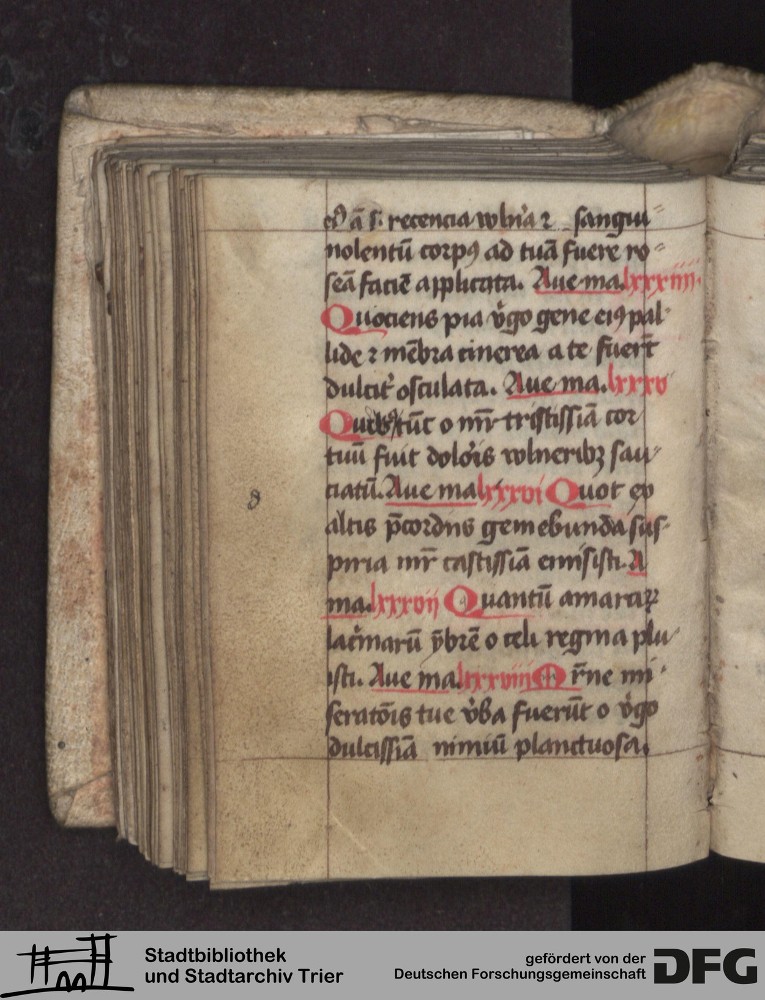 recencia wlnʼa ⁊ sangui⸗
nolentū corpꝰ ad tuā fuere ro⸗
seā faciē applicata. Aue ma. lxxxiiii.
Quociens pia vͦgo gene eiꝰ pal⸗
lide ⁊ mēbra cinerea a te fuerūt
dulcitʼ osculata. Aue ma. lxxxv
Quibꝰ tūc o mr̄ tristissīa cor
tuū fuit dolōis wlneribꝫ sau⸗
ciatū. Aue ma lxxxvi Quot ex
altis p̄cordiis gemebunda sus⸗
piria mr̄ castissīa emisisti. A
ma. lxxxvii Quantū amaraꝝ
lacͥmarū ẏbrē o celi regina plu⸗
isti. Aue ma. lxxxviii M r̄ne mi⸗
seratōis tue vͦba fuerūt o vͦgo
dulcissīa nimiū planctuosa.
8
Stadtbibliothek
und Stadtarchiv Trier
gefördert von der
Deutschen Forschungsgemeinschaft
DFG